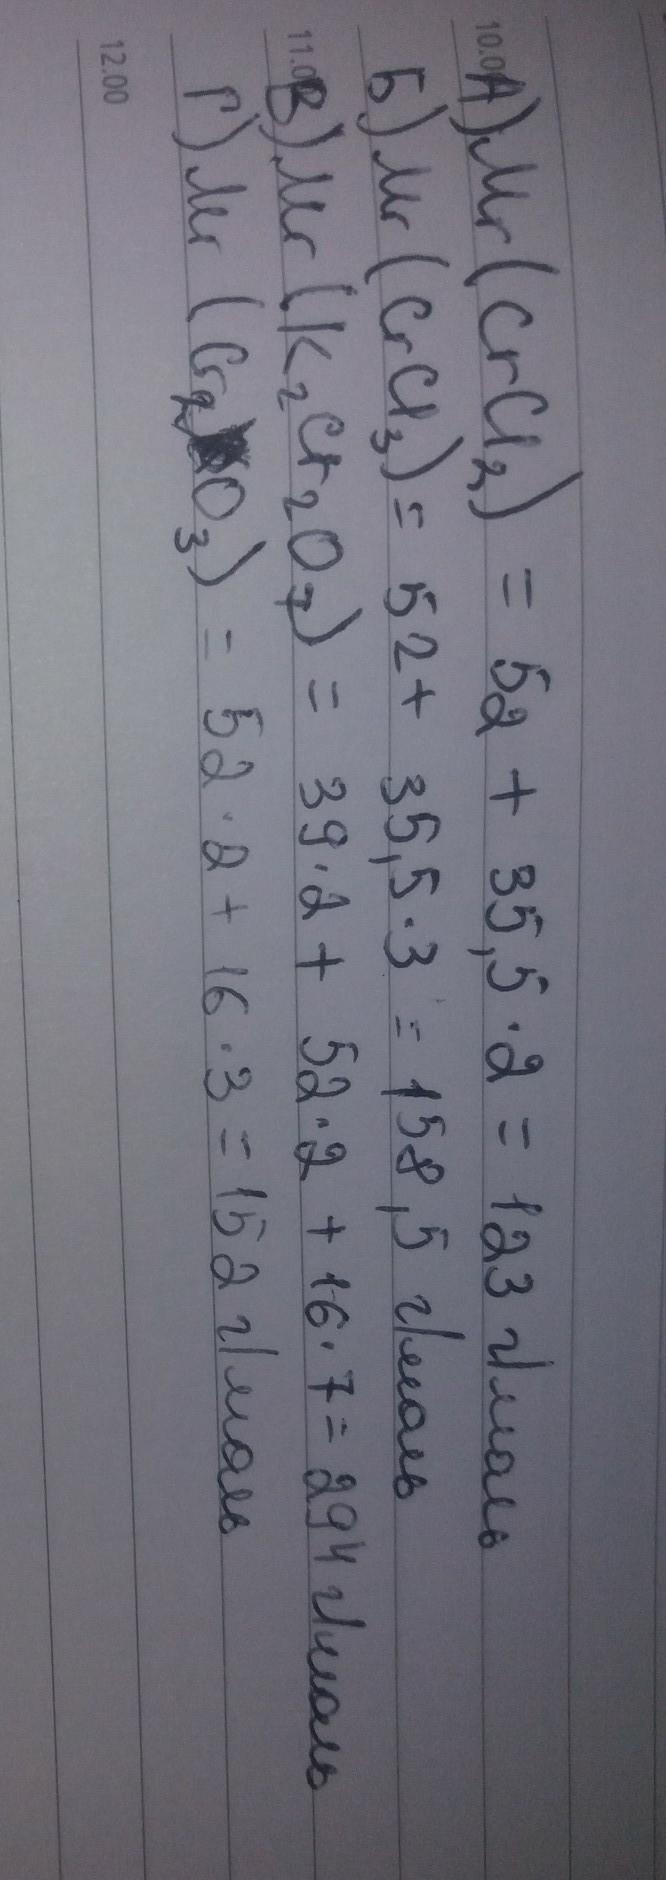 10.00
А) Mr (CrCl2) = 52 + 35,5·2 = 123 г/моль
Б) Mr (CrCl3) = 52 + 35,5·3 = 158,5 г/моль
11.00
В) Mr (K2Cr2O7) = 39·2 + 52·2 + 16·7 = 294 г/моль
Г) Mr (Cr2O3) = 52·2 + 16·3 = 152 г/моль
12.00